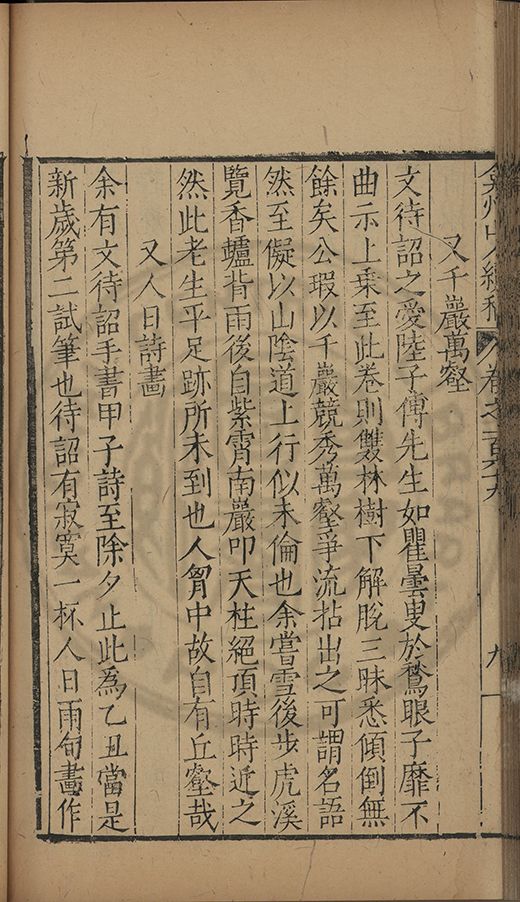 弇州山人續稿 卷之一百六十九 九
又千巖萬壑
文待詔之愛陸子傳先生如瞿曇叟於鶖眼子靡不
曲示上乗至此卷則雙林樹下解脫三昧悉傾倒無
餘矣公瑕以千巖競秀萬壑爭流拈出之可謂名語
然至儗以山陰道上行似未倫也余嘗雪後步虎溪
覽香爐背雨後自紫霄南巖叩天柱絕頂時時近之
然此老生平足跡所未到也人胷中故自有丘壑哉
又人日詩畵
余有文待詔手書甲子詩至除夕止此為乙丑當是
新歲第二試筆也待詔有寂寞一杯人日雨句畫作